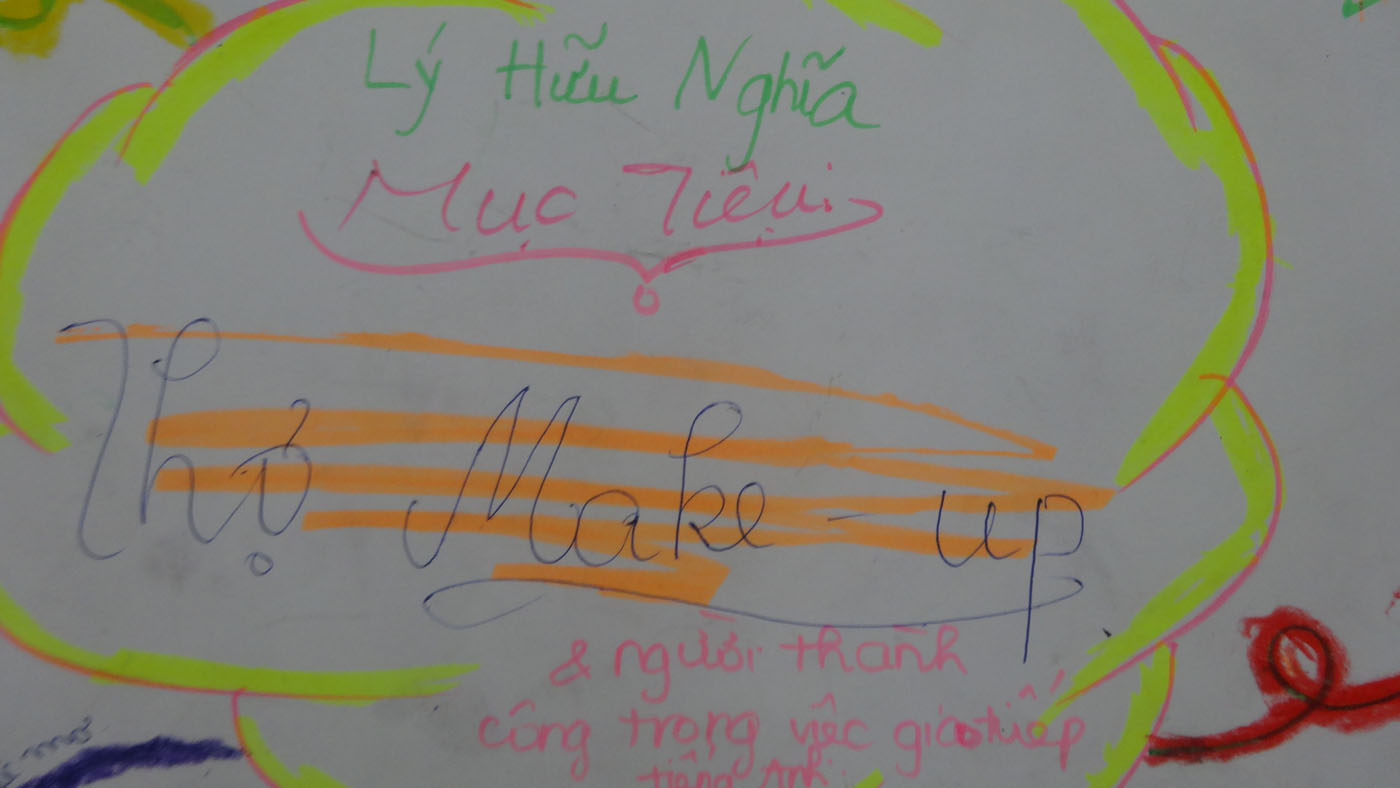 Lý Hữu Nghĩa
Mục Tiêu
Thợ Make - up
& người thành
công trong việc giao tiếp
tiếng Anh